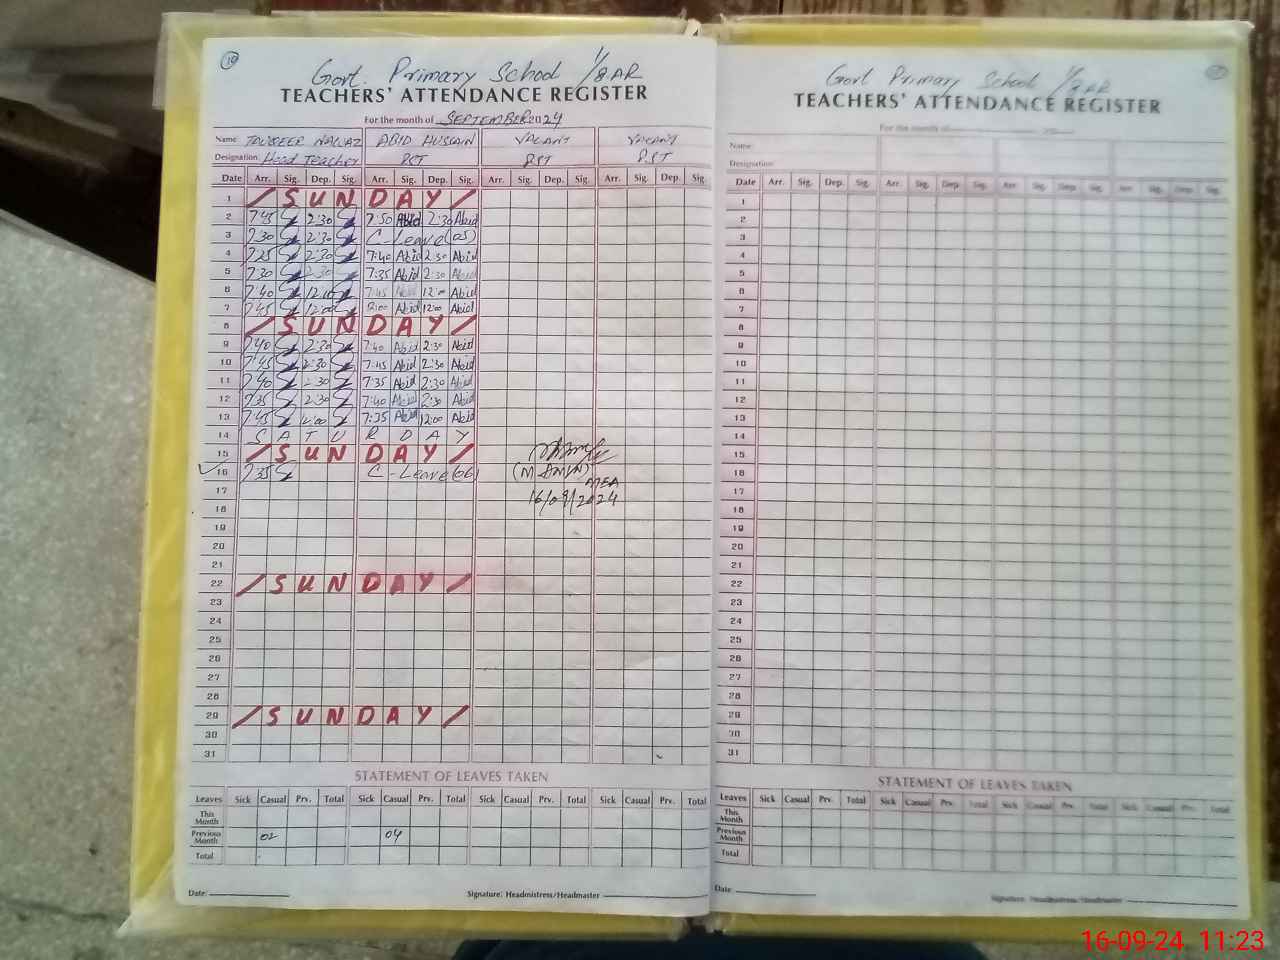 10
Govt. Primary School 1/8 AR
TEACHERS' ATTENDANCE REGISTER
For the month of SEPTEMBER 2024
Name: TAUQEER NAWAZ ABID HUSSAIN VACANT VACANT
Designation: Head Teacher PST PST PST
Date Arr. Sig. Dep. Sig. Arr. Sig. Dep. Sig. Arr. Sig. Dep. Sig. Arr. Sig. Dep. Sig.
1 / S U N D A Y /
2 7:45 2:30 7:50 Abid 2:30 Abid
3 7:30 2:30 C-Leave (05)
4 7:25 2:30 7:40 Abid 2:30 Abid
5 7:30 2:30 7:35 Abid 2:30 Abid
6 7:40 12:00 7:45 Abid 12:00 Abid
7 7:45 12:00 8:00 Abid 12:00 Abid
8 / S U N D A Y /
9 7:40 2:30 7:40 Abid 2:30 Abid
10 7:45 2:30 7:45 Abid 2:30 Abid
11 7:40 2:30 7:35 Abid 2:30 Abid
12 7:35 2:30 7:40 Abid 2:30 Abid
13 7:45 12:00 7:35 Abid 12:00 Abid
14 S A T U R D A Y
15 / S U N D A Y /
16 7:35 C-Leave (06) (M AMIN)
MEA
17 16/09/2024
18
19
20
21
22 / S U N D A Y /
23
24
25
26
27
28
29 / S U N D A Y /
30
31
STATEMENT OF LEAVES TAKEN
Leaves Sick Casual Prv. Total Sick Casual Prv. Total Sick Casual Prv. Total Sick Casual Prv. Total
This Month
Previous Month 02 04
Total
Date: Signature: Headmistress/Headmaster
Govt Primary School 1/8 AR
TEACHERS' ATTENDANCE REGISTER
For the month of 20
Name:
Designation:
Date Arr. Sig. Dep. Sig. Arr. Sig. Dep. Sig. Arr. Sig. Dep. Sig. Arr. Sig. Dep. Sig.
1
2
3
4
5
6
7
8
9
10
11
12
13
14
15
16
17
18
19
20
21
22
23
24
25
26
27
28
29
30
31
STATEMENT OF LEAVES TAKEN
Leaves Sick Casual Prv. Total Sick Casual Prv. Total Sick Casual Prv. Total Sick Casual Prv. Total
This Month
Previous Month
Total
Date: Signature: Headmistress/Headmaster
16-09-24 11:23